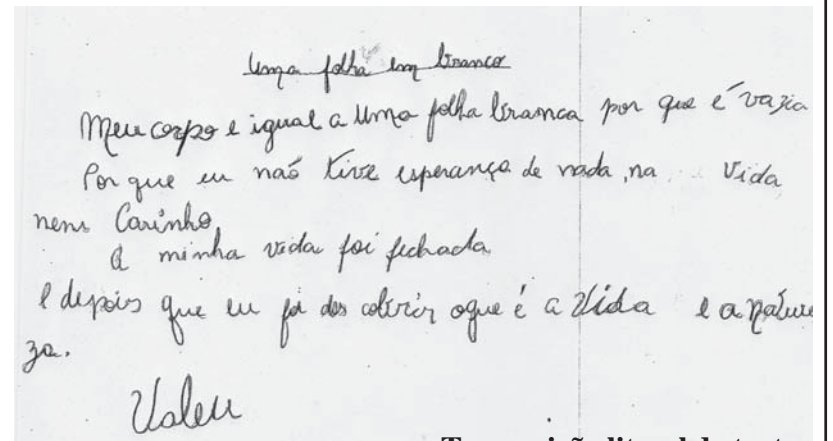 Uma folha em branco
Meu corpo e igual a Uma folha branca por que é vazia
Por que eu não tive esperança de nada, na Vida
nem Carinho,
a minha vida foi fechada
e depois que eu foi des cobrir oque é a Vida e a nature
za.
Valeu